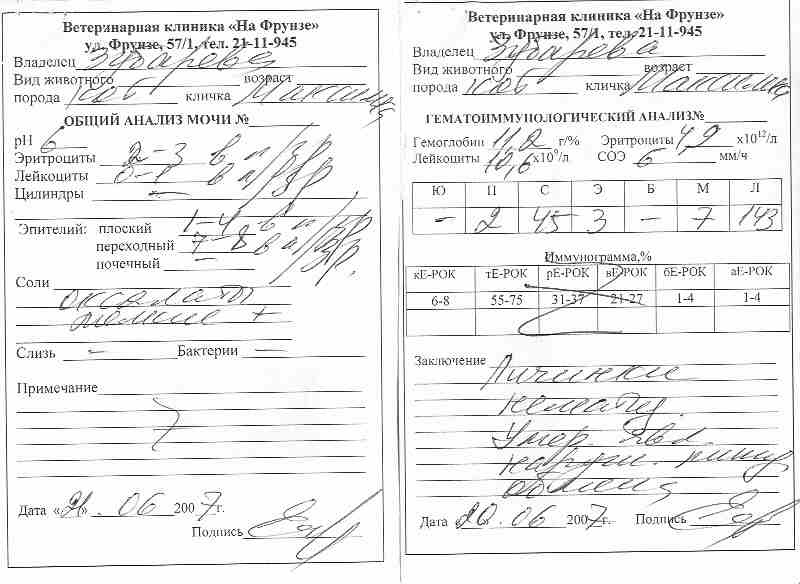 Ветеринарная клиника «На Фрунзе»
ул. Фрунзе, 57/1, тел. 21-11-945
Владелец Зубарева
Вид животного возраст
порода кличка
ОБЩИЙ АНАЛИЗ МОЧИ №
pH 6
Эритроциты 2-3 в п/зр
Лейкоциты 0-1 в п/зр
Цилиндры –
Эпителий: плоский 1-4 в п/зр
переходный 7-8 в п/зр
почечный –
Соли
оксалаты
мелкие +
Слизь – Бактерии –
Примечание
Дата «21» .06 2007г.
Подпись
Ветеринарная клиника «На Фрунзе»
ул. Фрунзе, 57/1, тел. 21-11-945
Владелец Зубарева
Вид животного возраст
порода кличка
ГЕМАТОИММУНОЛОГИЧЕСКИЙ АНАЛИЗ№
Гемоглобин 11,2 г/% Эритроциты 4,2 х10¹²/л
Лейкоциты 12,6 х10⁹/л СОЭ 6 мм/ч
Ю П С Э Б М Л
– 2 45 3 – 7 143
Иммунограмма,%
кЕ-РОК тЕ-РОК рЕ-РОК вЕ-РОК бЕ-РОК аЕ-РОК
6-8 55-75 31-37 21-27 1-4 1-4
Заключение Личинки
нематод.
Умер. явл.
наруш.
обмена
Дата 20.06 2007г. Подпись